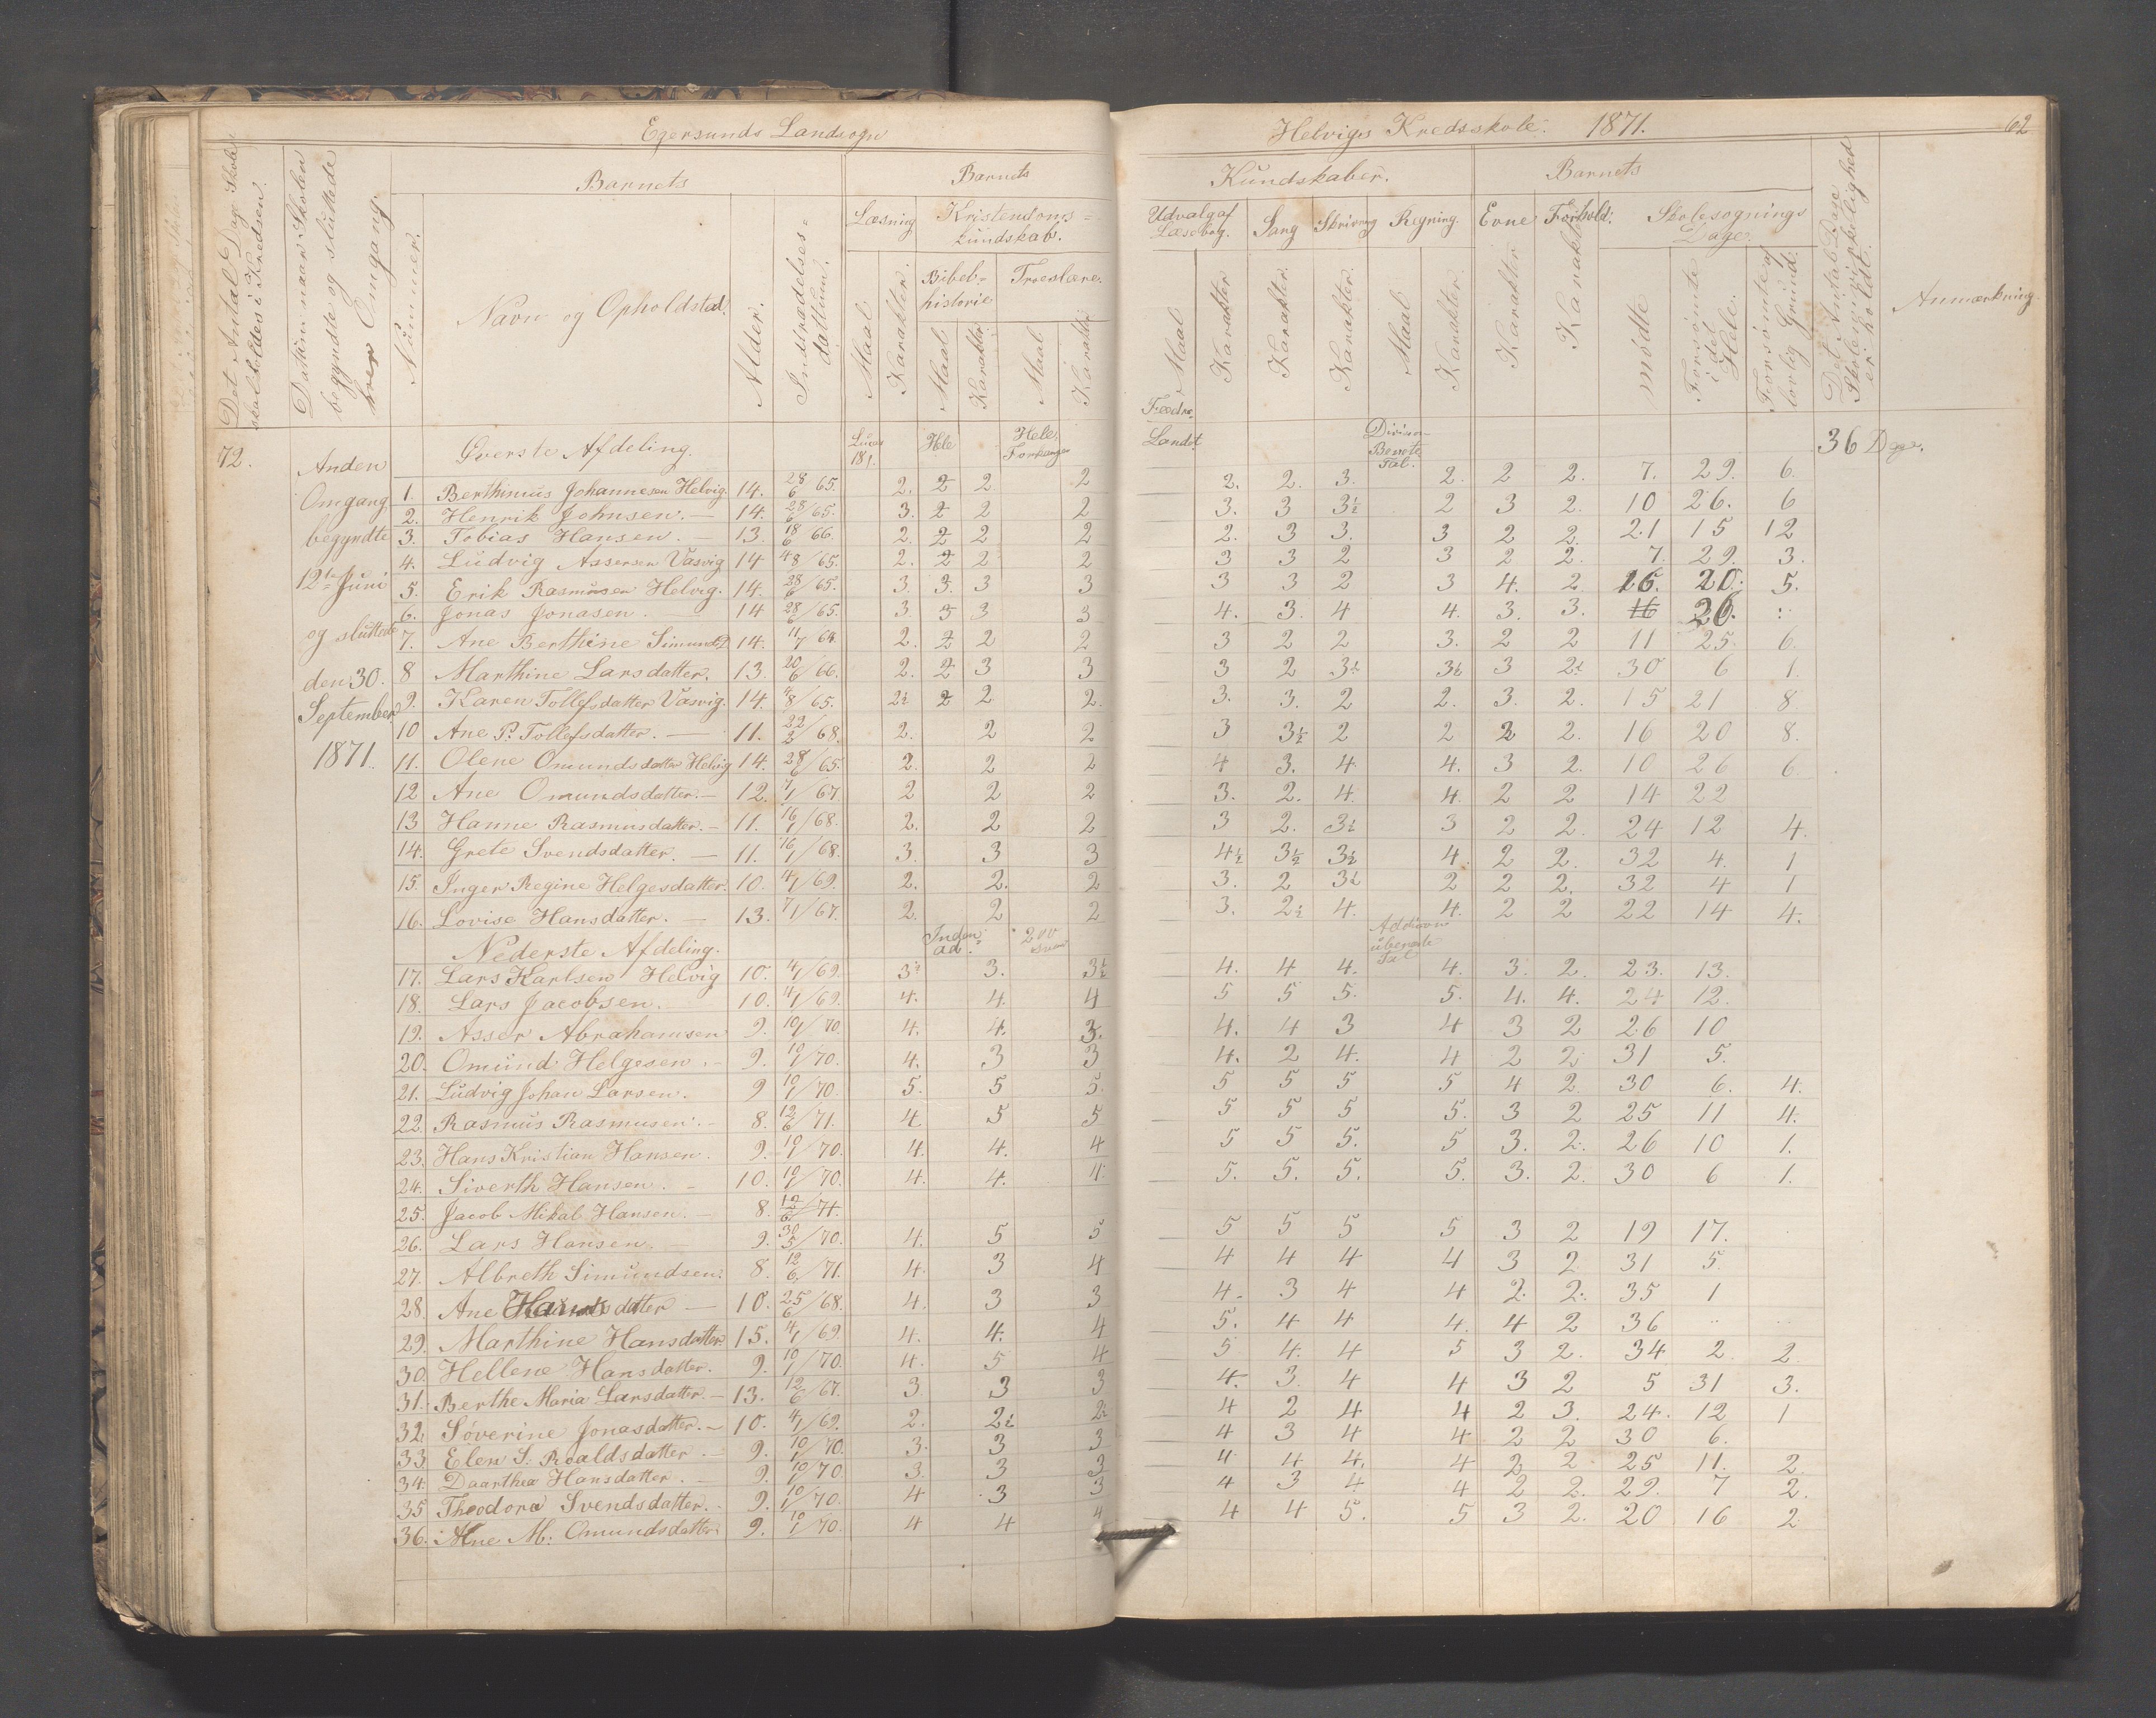 Egersunds Landsogn
Helvigs Kredsskole. 1871. 62
Det Antal Dage Skole skal holdes i Kredsen.
Datum naar Skolen begyndte og sluttede hver Omgang.
Nummer.
Barnets
Navn og Opholdsted.
Alder.
Indtrædelses= datum.
Barnets
Læsning
Kristendoms= kundskab.
Maal
Karakter.
Bibel= historie
Maal
Karakter.
Troeslære.
Maal
Karakter
Kundskaber.
Udvalg af Læsebog.
Maal
Karakter
Sang
Karakter.
Skrivning
Karakter.
Regning.
Maal
Karakter.
Barnets
Evne
Karakter
Forhold:
Karakter
Skolesøgnings Dage.
mødte
Forsømte i det Hele.
Forsømte af lovlig Grund.
Det Antal Dage Skolen i Virkelighed er holdt.
Anmærkning.
72.
Anden
Omgang
begyndte
12te Juni
og sluttede
den 30.
September
1871.
Øverste Afdeling. Lucas 181. Hele Hele Forklaringen Fædre Landet. Division Benevnte Tal. 36 Dage.
1. Berthinius Johannesen Helvig. 14. 28/6 65. 2. 2 2 2 2. 2. 3. 2. 2 2. 7. 29. 6.
2. Henrik Johnsen. — 14. 28/6 65. 3. 2 2 2 3. 3 3½ 2 3 2. 10 26. 6
3. Tobias Hansen. — 13. 18/6 66. 2. 2 2 2 2. 3 3. 3 2 2. 21 15 12
4. Ludvig Assersen Vasvig 14 4/8 65. 2. 2 2 2 3 3 2 3 2 2. 7. 29. 3.
5. Erik Rasmusen Helvig. 14. 28/6 65. 3. 3. 3 3 3 3 2 3 4. 2 16. 20. 5.
6. Jonas Jonasen. 14 28/6 65. 3. 3 3 3 4. 3. 4 4. 3. 3. 16 36. :
7. Ane Berthine Simundsd 14. 11/7 64. 2. 2 2 2 3 2 2 3. 2 2 11 25. 6.
8 Marthine Larsdatter. 13. 20/6 66. 2. 2 3 3 3 2 3½ 3½ 3 2½ 30 6 1.
9. Karen Tollefsdatter Vasvig. 14. 4/8 65. 2½ 2 2 2. 3. 3. 2 2. 3. 2. 15 21 8
10 Ane P. Tollefsdatter. — 11. 22/2 68. 2. 2 2 3 3½ 2 2 2 2. 16 20 8.
11. Olene Omundsdatter Helvig 14. 28/6 65. 2. 2 2 4 3. 4. 4. 3 2. 10 26 6
12 Ane Omundsdatter. — 12. 7/1 67. 2 2 2 3. 2. 4. 4. 2 2 14 22
13 Hanne Rasmusdatter. – 11. 16/1 68. 2. 2 2 3 2. 3½ 3 2 2. 24 12 4.
14. Grete Svendsdatter. — 11. 16/1 68. 3. 3 3 4½ 3½ 3½ 4. 2 2. 32 4. 1
15. Inger Regine Helgesdatter. 10. 4/1 69. 2. 2. 2 3. 2 3½ 2 2 2. 32 4 1
16. Lovise Hansdatter. — 13. 7/1 67. 2. 2 2 3. 2½ 4. 4. 2 2 22 14 4.
Nederste Afdeling. Inden ad. 200 Addition ubenevnte Tal
17. Lars Karlsen Helvig 10. 4/1 69. 3½ 3. 3½ 4. 4 4. 4. 3. 2. 23. 13.
18. Lars Jacobsen. 10. 4/1 69. 4. 4. 4 5 5 5. 5. 4. 4. 24 12.
19. Asser Abrahamsen 9. 10/1 70. 4. 4. 3. 4. 4 3 4 3 2 26 10
20. Omund Helgesen. – 9. 10/1 70. 4. 3 3 4. 2 4. 4 2 2. 31 5.
21. Ludvig Johan Larsen. 9 10/1 70. 5. 5 5. 5 5 5 5 4 2. 30 6. 4.
22. Rasmus Rasmusen. – 8. 12/6 71. 4. 5 5 5 5 5 5. 3 2 25 11 4.
23. Hans Kristian Hansen. 9. 10/1 70. 4. 4. 4 5 5 5. 5 3. 2. 26 10 1.
24. Siverth Hansen. – 10. 10/1 70. 4. 4. 4. 5. 5. 5. 5. 3. 2. 30 6 1.
25. Jacob Mikal Hansen. – 8. 12/6 71.
26. Lars Hansen. — 9. 30/5 70. 4. 5 5 5 5 5 5 3 2 19 17.
27. Albreth Simundsen. 8. 12/6 71. 4. 3 4 4 4 4 4 3 2 31 5.
28. Ane Hansdatter — 10. 25/6 68. 4. 3 3 4. 3 4 4 2. 2. 35 1
29. Marthine Hansdatter. 15. 4/1 69. 4. 4. 4 5. 4 4 4. 4 2 36
30. Hellene Hansdatter. 9. 10/1 70. 4. 5 4 5 4. 4 5 3 2. 34 2. 2.
31. Berthe Maria Larsdatter. – 13. 12/6 67. 3 3 3 4. 3. 4 4 3 2 5 31 3.
32. Søverine Jonasdatter. – 10. 4/1 69. 2. 2½ 2½ 4 2 4 4 2 3. 24. 12 1
33 Elen S. Roaldsdatter. – 9. 10/1 70. 3. 3 3 4 3 4 4 2 2 30 6.
34. Daarthea Hansdatter. – 9. 10/1 70. 3. 3 3 4 4 4. 4 2 2 25 11. 2.
35 Theodora Svendsdatter. . 9. 10/1 70. 4 3 3 4 3 4 4 2 2. 29. 7 2.
36. Ane M. Omundsdatter. 9. 10/1 70. 4 4 4 4 4 5. 5 3 2. 20 16 2.